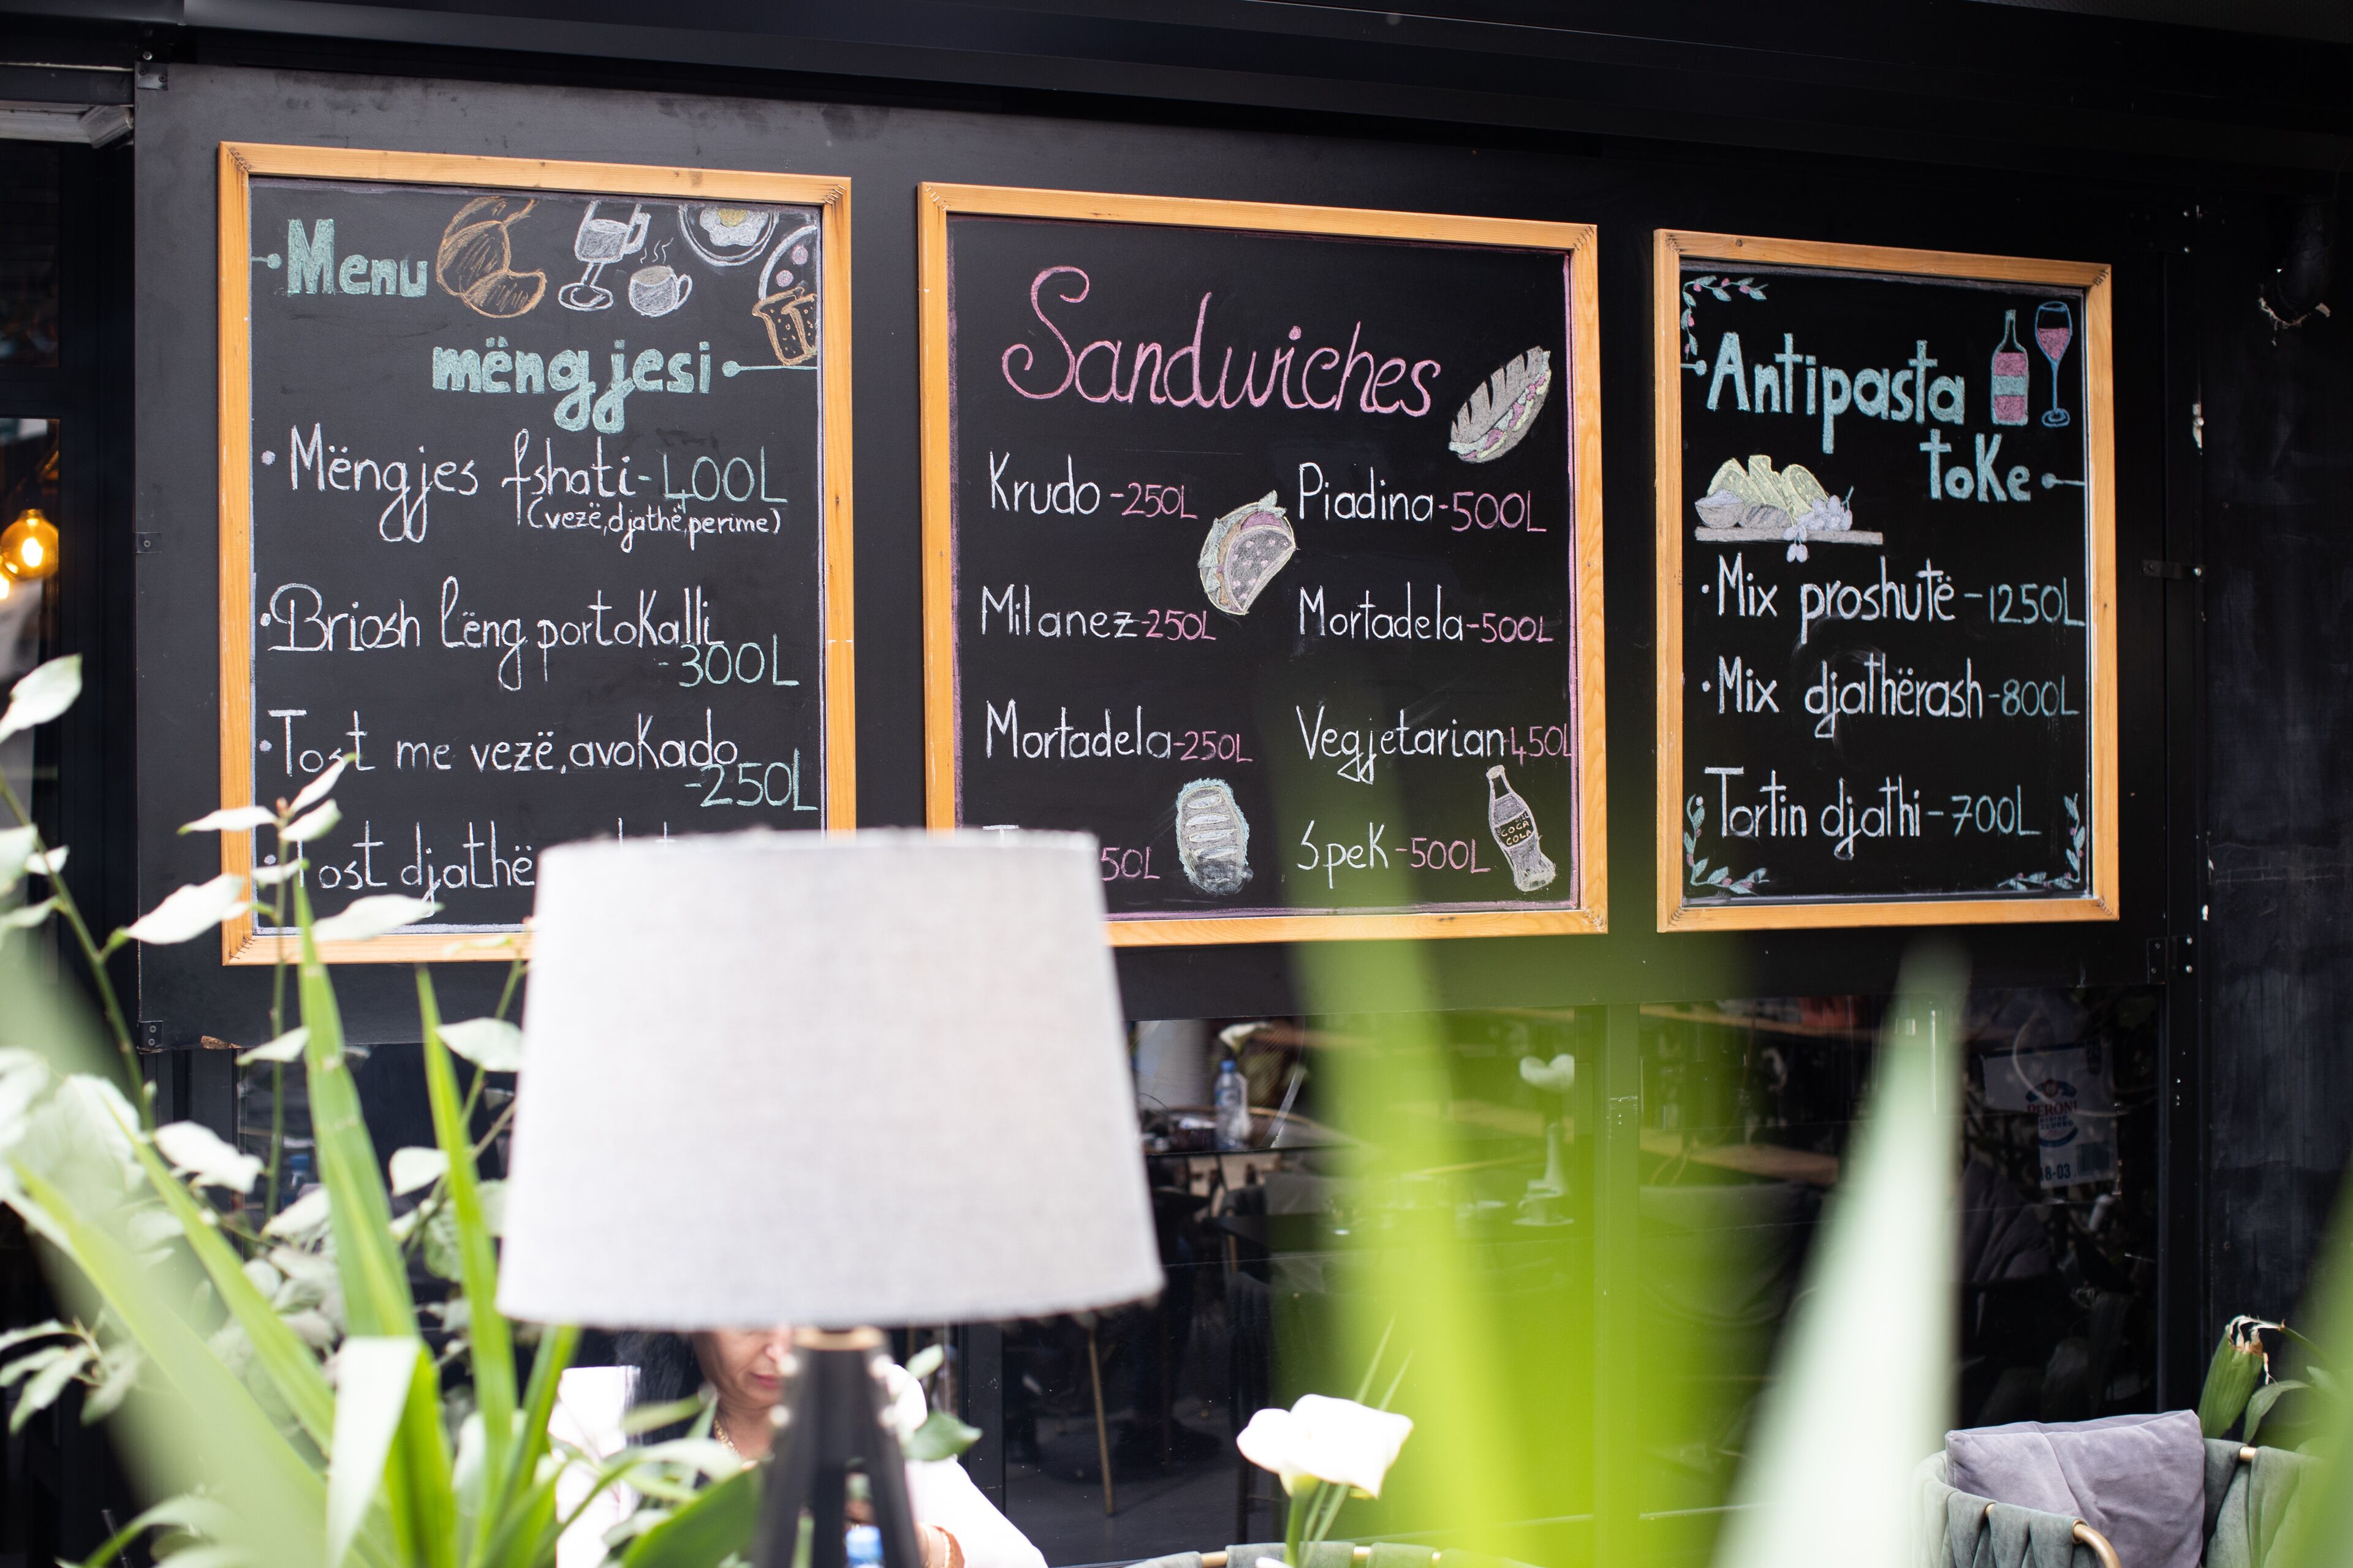 Menu
mëngjesi
• Mëngjes fshati - 400L
(vezë, djathë, perime)
• Briosh lëng portokalli
- 300L
• Tost me vezë, avokado
- 250L
• Tost djathë
Sandwiches
Krudo - 250L
Milanez - 250L
Mortadela - 250L
50L
Piadina - 500L
Mortadela - 500L
Vegjetarian - 450L
Spek - 500L
COCA
COLA
Antipasta
toke
• Mix proshutë - 1250L
• Mix djathërash - 800L
Tortin djathi - 700L
PERONI
8-03